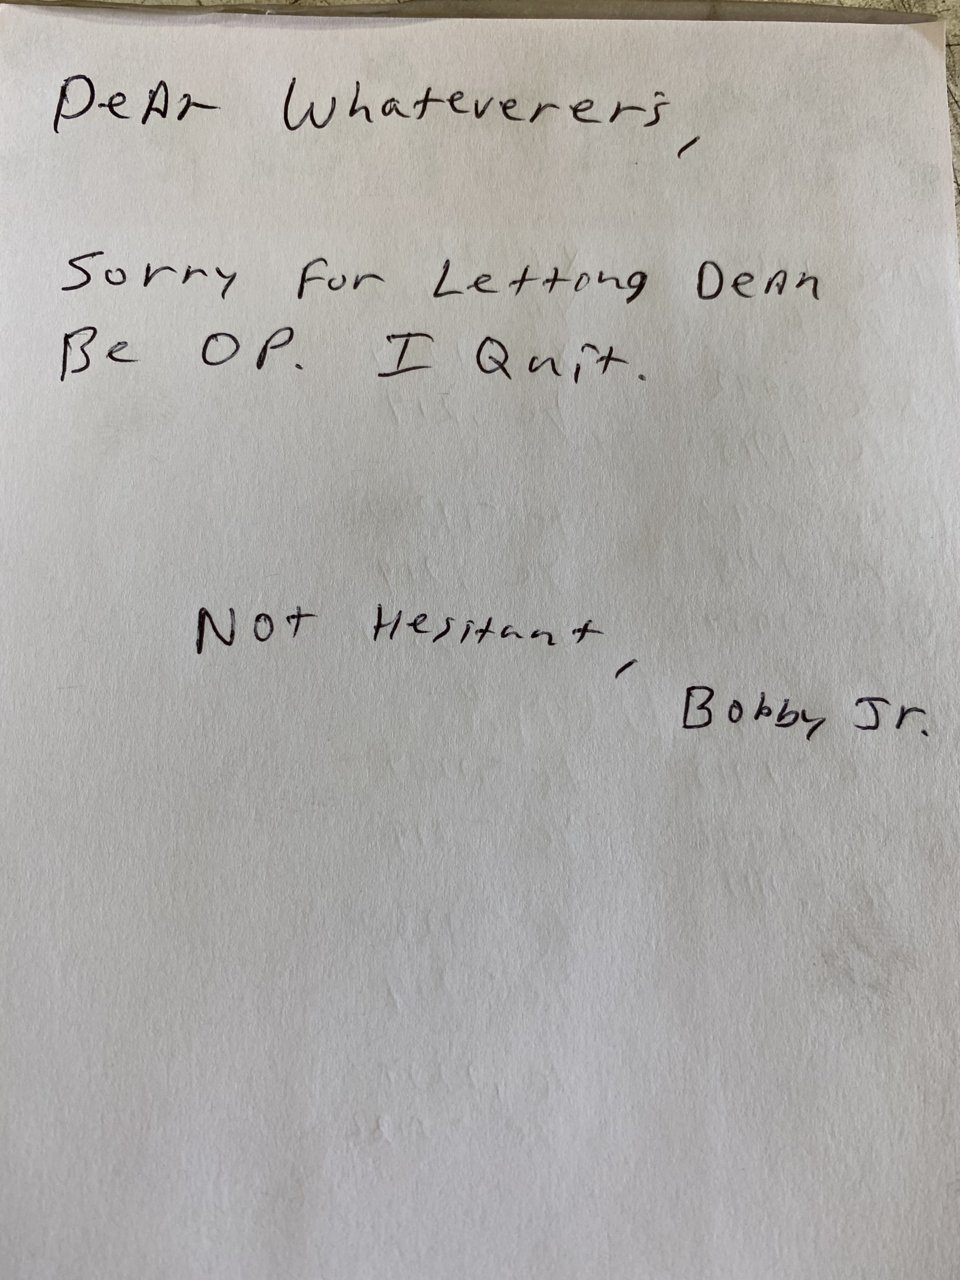 Dear Whateverers,
Sorry For Lettong Dean
Be OP. I Quit.
Not Hesitant,
Bobby Jr.